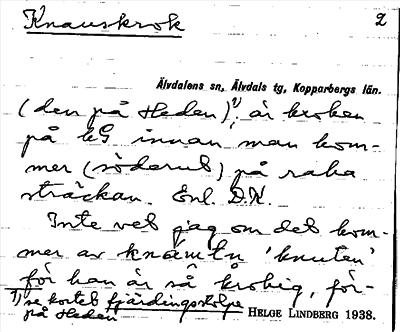 Knauskrok 2
Älvdalens sn, Älvdals tg, Kopparbergs län.
(den på Heden)¹⁾, är kroken
på innan man kom-
mer (söderut) på raka
sträckan. Enl. D.K.
Inte vet jag om det kom-
mer av 'knuten'
för han är så krokig, för-
1) se kortet fjärdingsstolpe
på Heden
HELGE LINDBERG 1938.